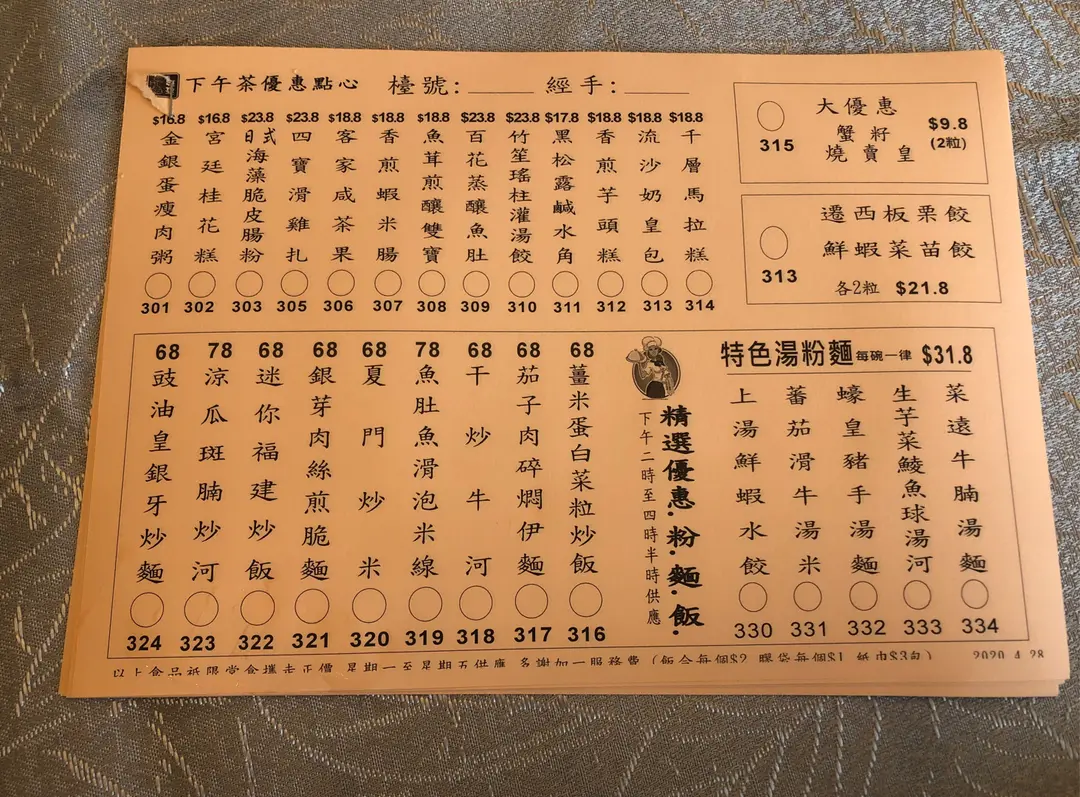 下午茶優惠點心 檯號:______ 經手:______
$16.8 金銀蛋瘦肉粥 301
$16.8 宮廷桂花糕 302
$23.8 日式海藻脆皮腸粉 303
$23.8 四寶滑雞扎 305
$18.8 客家咸茶果 306
$18.8 香煎蝦米腸 307
$18.8 魚茸煎釀雙寶 308
$23.8 百花蒸釀魚肚 309
$23.8 竹笙瑤柱灌湯餃 310
$17.8 黑松露鹹水角 311
$18.8 香煎芋頭糕 312
$18.8 流沙奶皇包 313
$18.8 千層馬拉糕 314
大優惠
蟹籽
燒賣皇
$9.8
(2粒)
315
遷西板栗餃
鮮蝦菜苗餃
各2粒 $21.8
313
68 豉油皇銀牙炒麵 324
78 涼瓜斑腩炒河 323
68 迷你福建炒飯 322
68 銀芽肉絲煎脆麵 321
68 夏門炒米 320
78 魚肚魚滑泡米線 319
68 干炒牛河 318
68 茄子肉碎燜伊麵 317
68 薑米蛋白菜粒炒飯 316
精選優惠·粉·麵·飯·
下午二時至四時半時供應
特色湯粉麵 每碗一律 $31.8
上湯鮮蝦水餃 330
蕃茄滑牛湯米 331
蠔皇豬手湯麵 332
生芋菜鯪魚球湯河 333
菜遠牛腩湯麵 334
以上食品祗限堂食攜走正價 星期一至星期五供應 多謝加一服務費 (飯合每個$2 膠袋每個$1 紙巾$3包) 2020.4.28